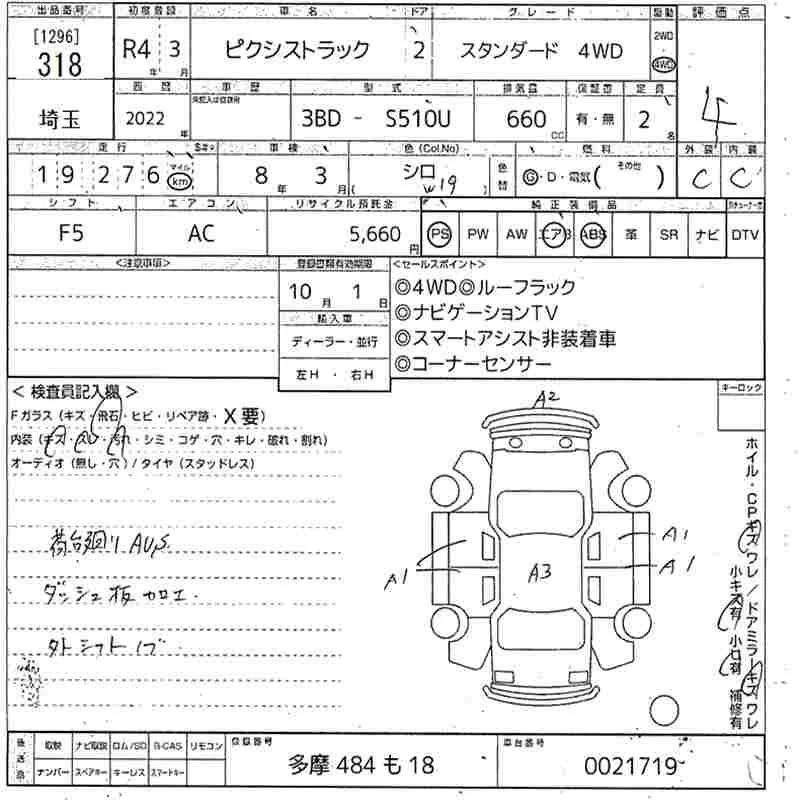 出品番号 初度登録 車名 ドア グレード 駆動 評価点
[1296] 318 R4 年 3 月 ピクシストラック 2 スタンダード 4WD 2WD 4WD
西暦 車歴 型式 排気量 保証書 定員 4
埼玉 2022 年 3BD - S510U 660 CC 有・無 2 名
走行 車検 色(Col.No) 燃料 外装 内装
19276 マイル km 8 年 3 月 シロ W19 色替 G・D・電気( その他 ) C C
シフト エアコン リサイクル預託金 純正装備品
F5 AC 5,660 円 PS PW AW エアB ABS 革 SR ナビ DTV
<注意事項> 登録書類有効期限 <セールスポイント>
10 月 1 日 ◎4WD◎ルーフラック
輸入車 ◎ナビゲーションTV
ディーラー・並行 ◎スマートアシスト非装着車
左H ・ 右H ◎コーナーセンサー
< 検査員記入欄 > キーロック
Fガラス(キズ・飛石・ヒビ・リペア跡・X要)
内装(キズ・スレ・汚れ・シミ・コゲ・穴・キレ・破れ・割れ)
オーディオ(無し・穴)/タイヤ(スタッドレス)
A2
荷台廻り AUS
A1 A1
A1 A3
ダッシュ板加工
外シフトノブ
ホイル・CPキズワレ/ドアミラーキズワレ
小キズ有 小凹有 補修有
後送品 取説 ナビ取説 ロム/SD B-CAS リモコン 登録番号 車台番号
ナンバー スペアキー キーレス スマートキー 多摩 484 も 18 0021719